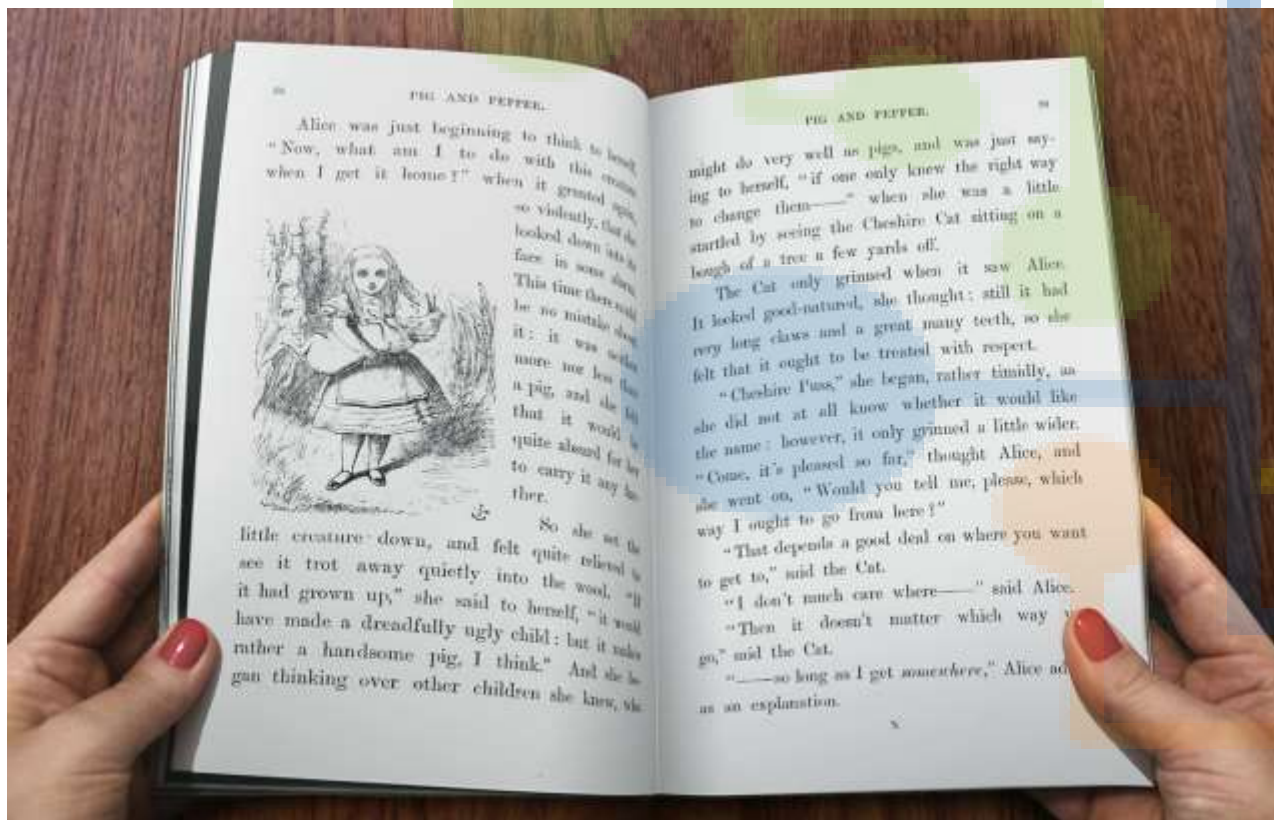 PIG AND PEPPER.
Alice was just beginning to think to herself,
"Now, what am I to do with this creature
when I get it home?" when it grunted again,
so violently, that she
looked down into its
face in some alarm.
This time there could
be no mistake about
it: it was neither
more nor less than
a pig, and she felt
that it would be
quite absurd for her
to carry it any fur-
ther.
So she set the
little creature down, and felt quite relieved to
see it trot away quietly into the wood. "If
it had grown up," she said to herself, "it would
have made a dreadfully ugly child: but it makes
rather a handsome pig, I think." And she be-
gan thinking over other children she knew, who
PIG AND PEPPER.
might do very well as pigs, and was just say-
ing to herself, "if one only knew the right way
to change them——" when she was a little
startled by seeing the Cheshire Cat sitting on a
bough of a tree a few yards off.
The Cat only grinned when it saw Alice.
It looked good-natured, she thought: still it had
very long claws and a great many teeth, so she
felt that it ought to be treated with respect.
"Cheshire Puss," she began, rather timidly, as
she did not at all know whether it would like
the name: however, it only grinned a little wider.
"Come, it's pleased so far," thought Alice, and
she went on, "Would you tell me, please, which
way I ought to go from here?"
"That depends a good deal on where you want
to get to," said the Cat.
"I don't much care where——" said Alice.
"Then it doesn't matter which way
go," said the Cat.
"——so long as I get somewhere," Alice
as an explanation.